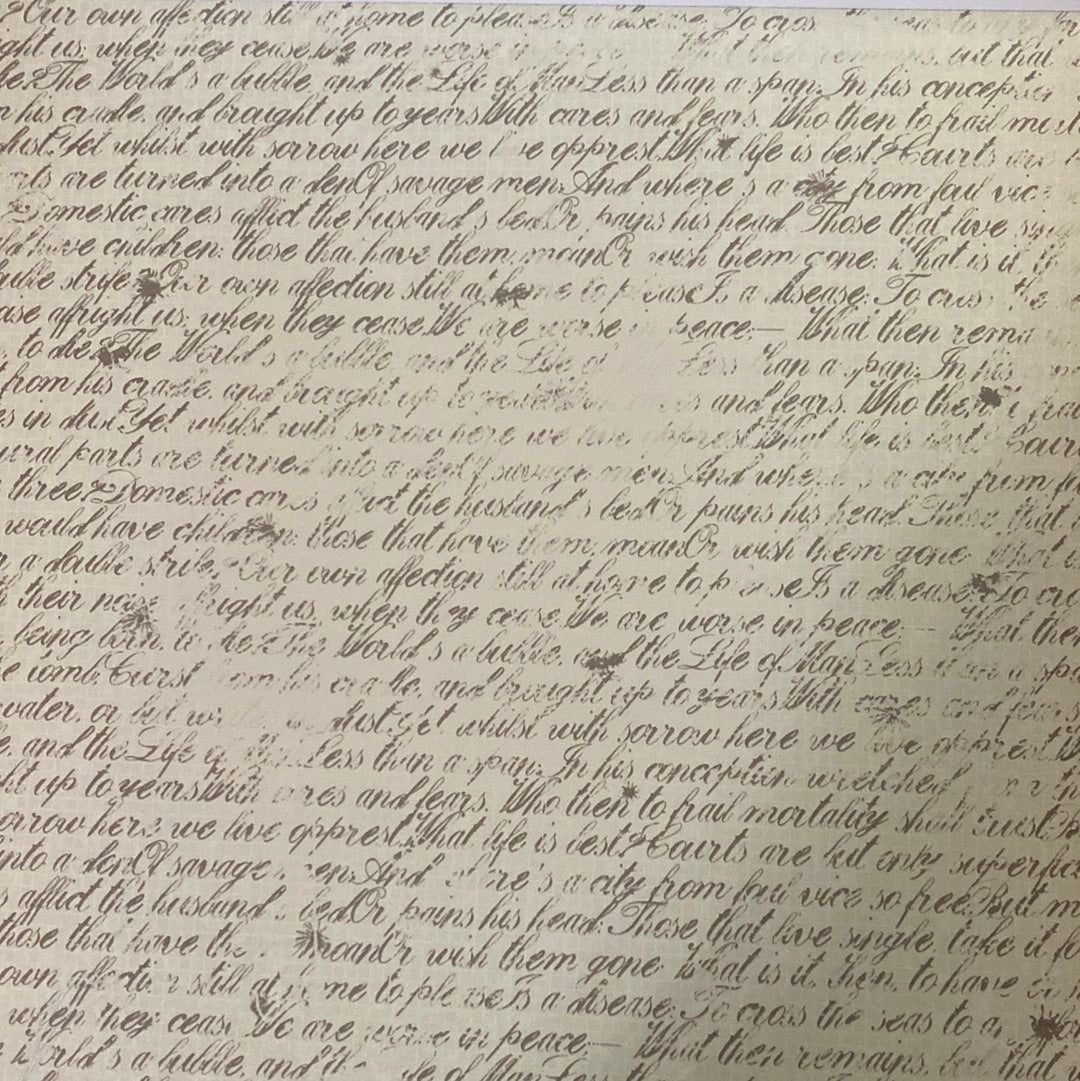 ? Our own affection still at home to please Is a disease: To cros
ight us; when they cease, We are worse in then remains, but that
? The World's a bubble, and the Life of Man Less than a span: In his conception
his cradle, and brought up to years With cares and fears. Who then to frail
dust. Yet whilst with sorrow here we live opprest, What life is best? Courts are
are turned into a den Of savage men: And where's a city from foul vice
Domestic cares afflict the husband's bed Or pains his head. Those that live
have children; those that have them, moan Or wish them gone: What is it,
strife? Our own affection still at home to please Is a disease: To cross the
affright us; when they cease We are worse in peace;— What then rema
, to die? The World's a bubble, and the Life of Less than a span: In his
from his cradle, and brought up to years and fears. Who then
in dust. Yet whilst with sorrow here we live opprest What life is best? Court
parts are turned into a den Of savage men: And where's a city from
three? Domestic cares afflict the husband's bed Or pains his head. Those that
would have children; those that have them, moan Or wish them gone: What
a double strife? Our own affection still at home to please Is a disease: To
their noise affright us, when they cease We are worse in peace;— What then
being born, to die? The World's a bubble, and the Life of Man Less than a spa
womb Curst from his cradle, and brought up to years With cares and fears
water, or but dust. Yet whilst with sorrow here we live opprest
, and the Life Less than a span: In his conception wretched
ht up to years With cares and fears. Who then to frail mortality shall trust
orrow here we live opprest, What life is best? Courts are but only superfic
into a den Of savage men: And where's a city from foul vice so free But
afflict the husband's bed Or pains his head: Those that live single, take it
those that have moan Or wish them gone: What is it, then, to have
own affection still at home to please Is a disease: To cross the seas to
, when they cease We are worse in peace;— What then remains, but that
World's a bubble, and Life of Man Less